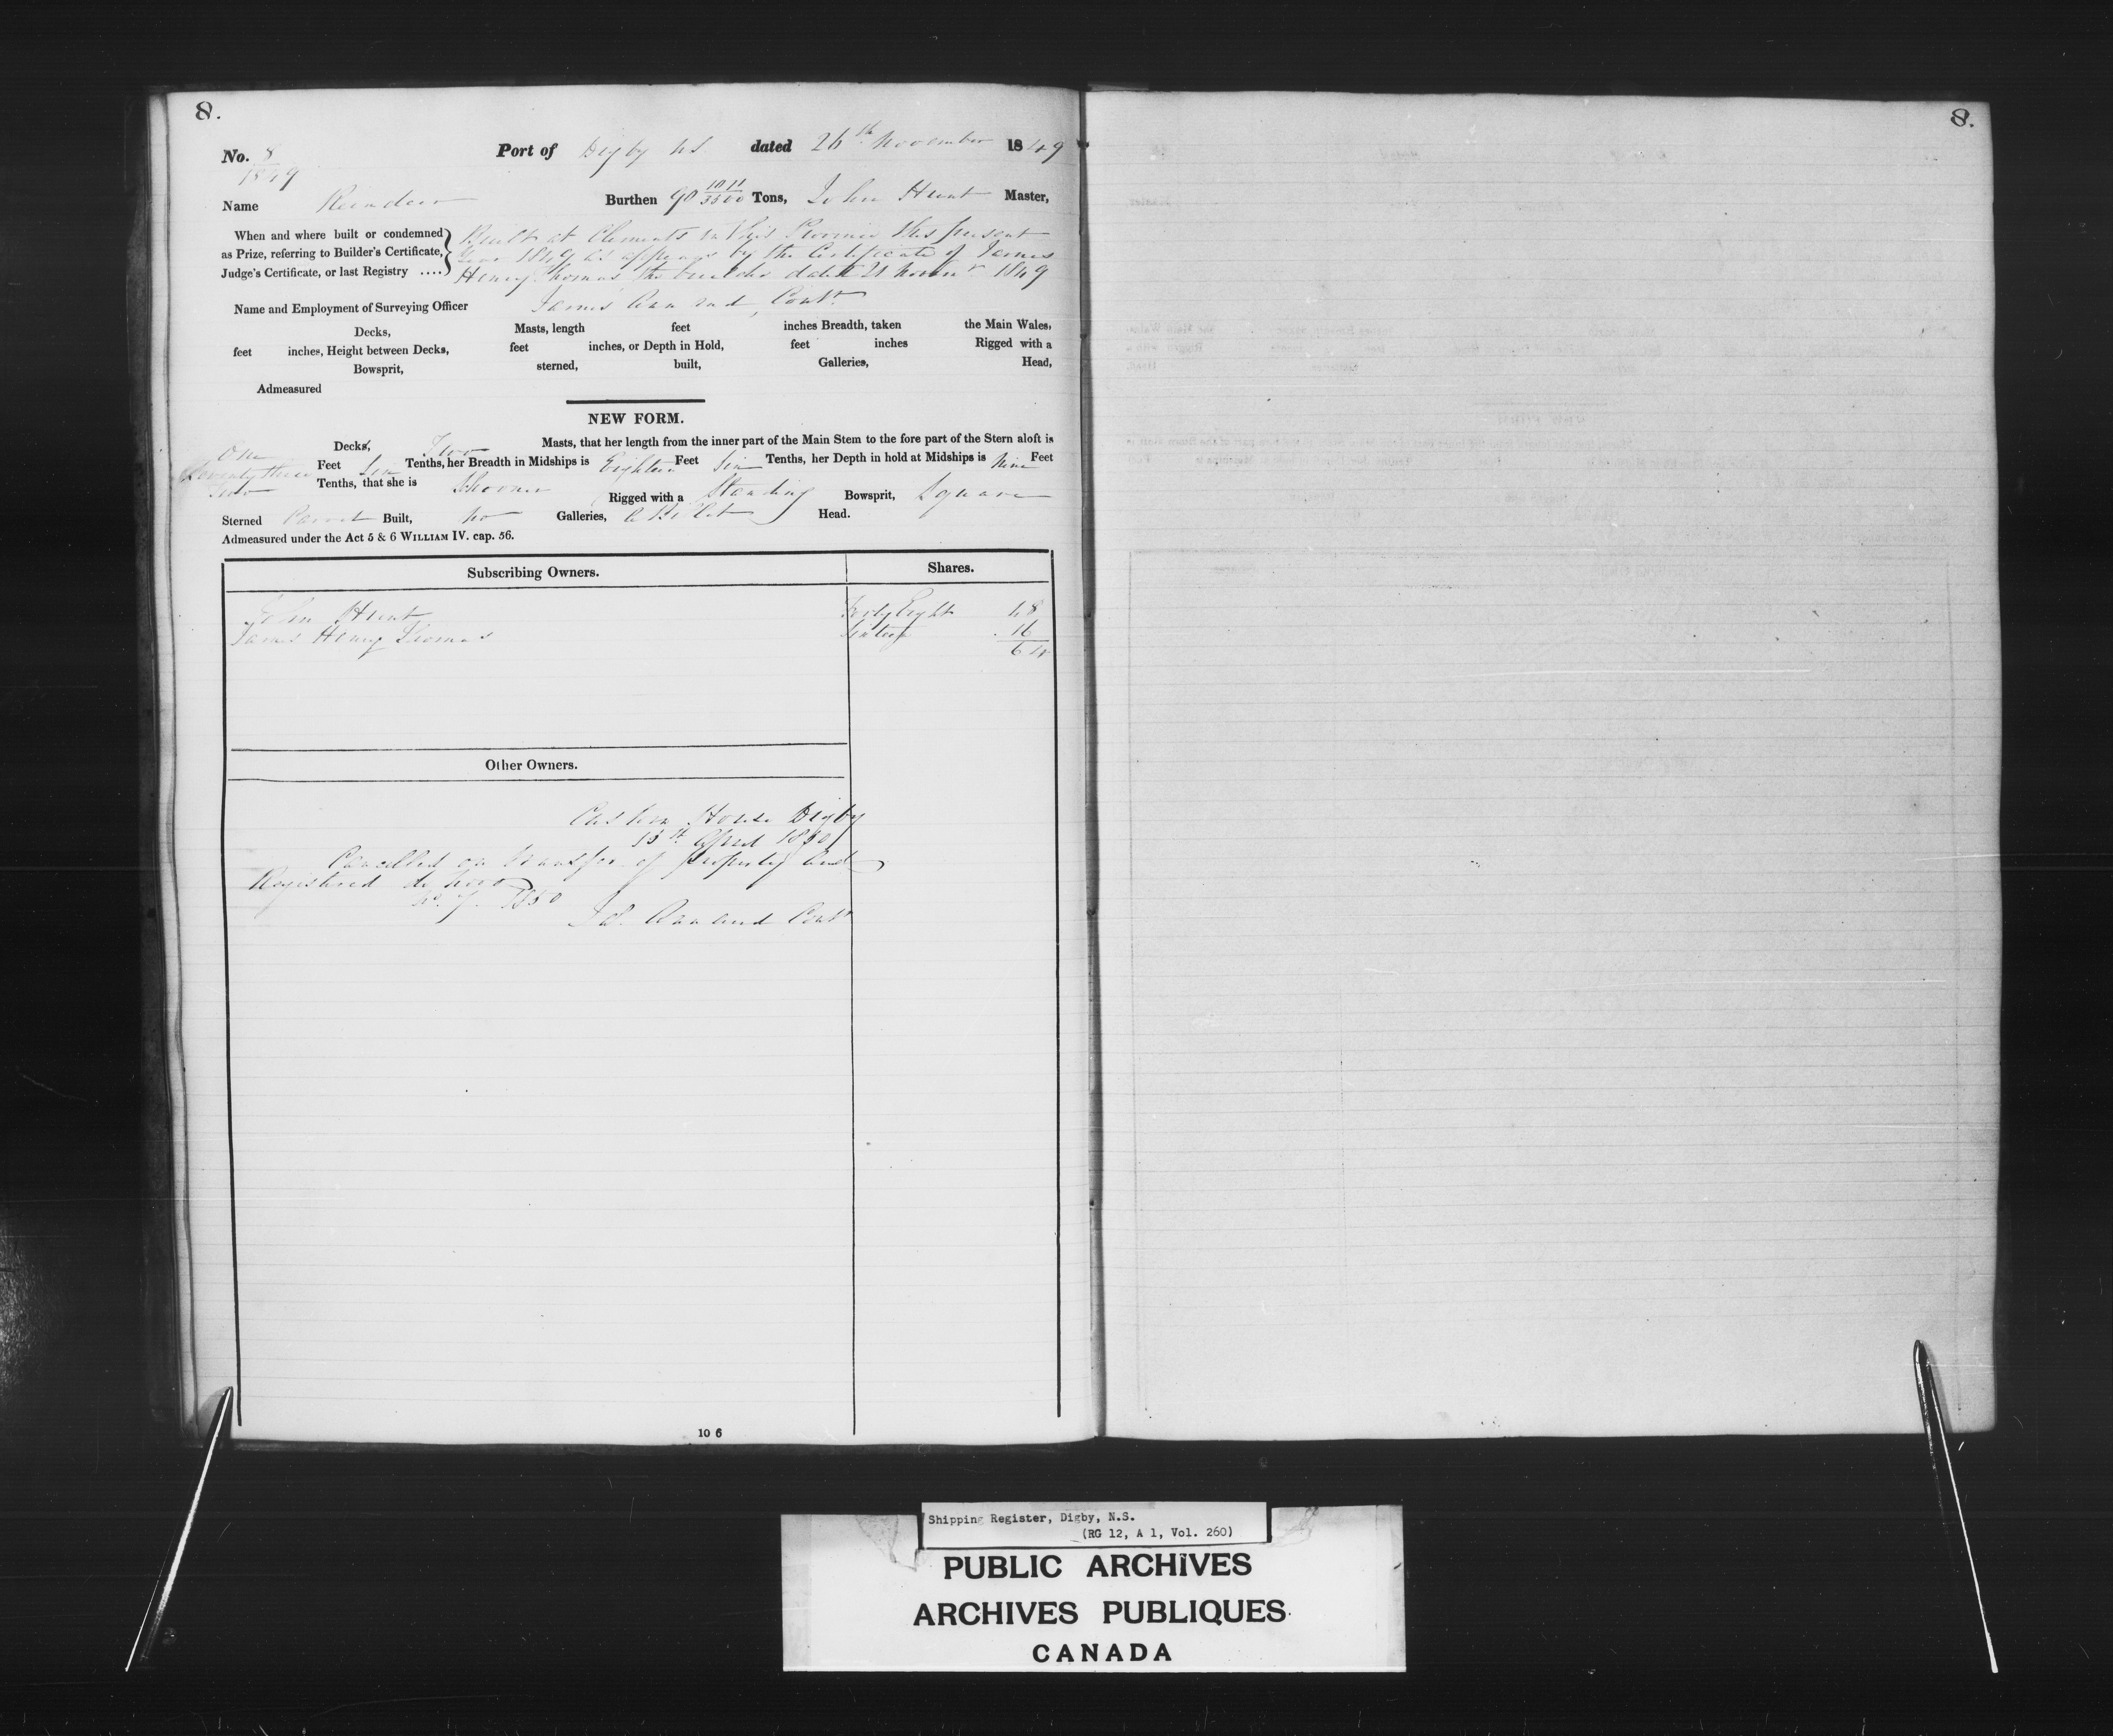 8.
8.
No. 8/1849 Port of Digby NS dated 26th November 1849
Name Reindeer Burthen 90 1011/3500 Tons, John Hunt Master,
When and where built or condemned as Prize, referring to Builder's Certificate, Judge's Certificate, or last Registry ....
Built at Clements in this Province this present
Year 1849 as appears by the Certificate of James
Henry Thomas the builder dated 21 Novemr 1849
Name and Employment of Surveying Officer James Contr
Decks, Masts, length feet inches Breadth, taken the Main Wales,
feet inches, Height between Decks, feet inches, or Depth in Hold, feet inches Rigged with a
Bowsprit, sterned, built, Galleries, Head,
Admeasured
NEW FORM.
One Decks, Two Masts, that her length from the inner part of the Main Stem to the fore part of the Stern aloft is
Seventy three Feet Six Tenths, her Breadth in Midships is Eighteen Feet Six Tenths, her Depth in hold at Midships is Nine Feet
Two Tenths, that she is Schooner Rigged with a Standing Bowsprit, Square
Sterned Carvel Built, No Galleries, Billet Head.
Admeasured under the Act 5 & 6 WILLIAM IV. cap. 56.
Subscribing Owners. Shares.
John Hunt Forty Eight 48
James Henry Thomas Sixteen 16
64
Other Owners.
Custom House Digby
15th April 1850
Cancelled on transfer of property and
Registered de Novo
No. 7. 1850
Contr
10 6
Shipping Register, Digby, N.S.
(RG 12, A 1, Vol. 260)
PUBLIC ARCHIVES
ARCHIVES PUBLIQUES
CANADA